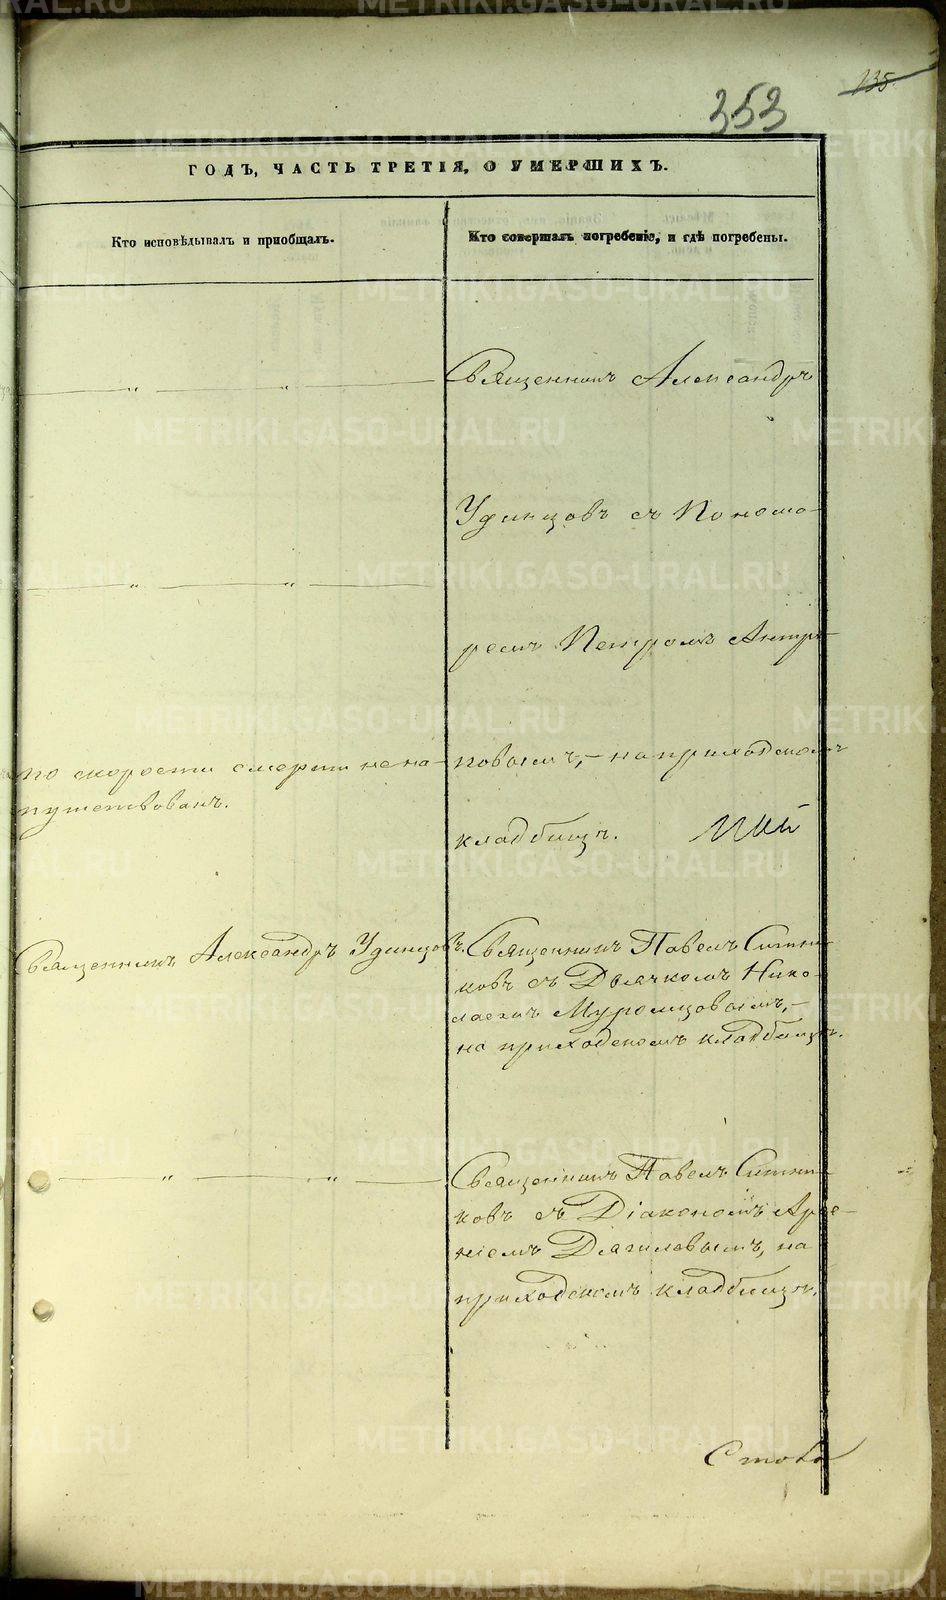 135
353
ГОДЪ, ЧАСТЬ ТРЕТІЯ, О УМЕРШИХЪ.
Кто исповѣдывалъ и пріобщалъ.
Кто совершалъ погребеніе, и гдѣ погребены.
Священникъ Александръ
Удинцовъ съ Понома-
ремъ Петромъ Антро-
повымъ, – на приходскомъ
кладбищѣ.
по скорости смерти не на-
путствованъ.
Священникъ Александръ Удинцовъ.
Священникъ Павелъ Ситни-
ковъ съ Дьячкомъ Нико-
лаемъ Муромцовымъ, –
на приходскомъ кладбищѣ.
Священникъ Павелъ Ситни-
ковъ съ Діакономъ Арсе-
ніемъ Дягилевымъ, на
приходскомъ кладбищѣ.
METRIKI.GASO-URAL.RU